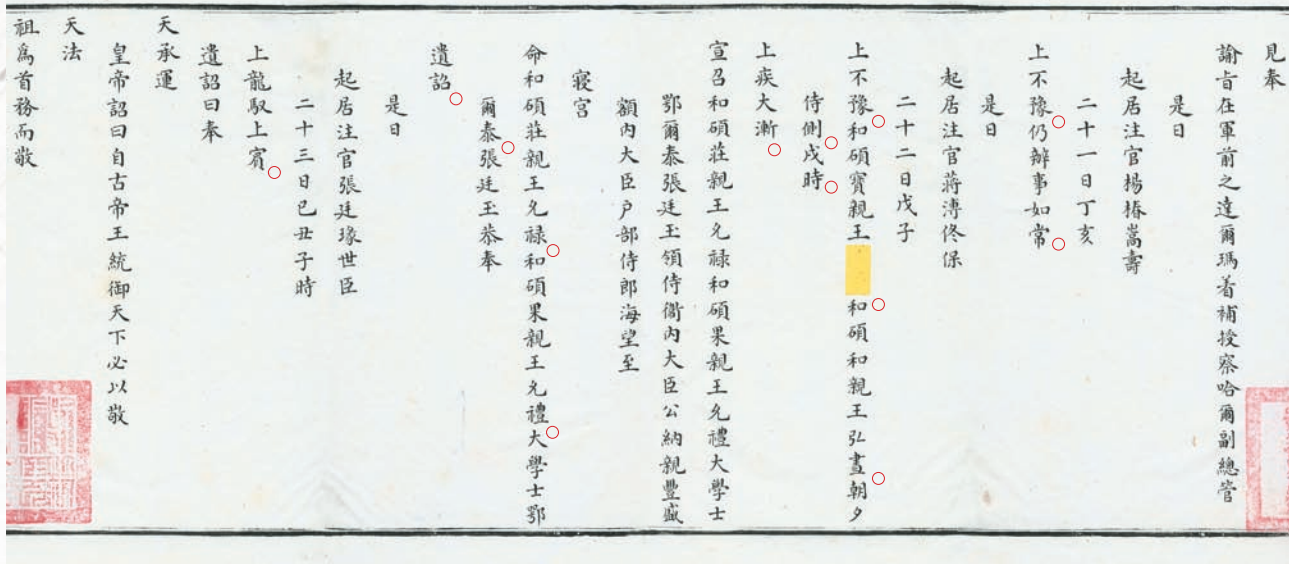 見奉
諭旨在軍前之達爾瑪着補授察哈爾副總管
是日
起居注官楊椿嵩壽
二十一日丁亥
上不豫仍辦事如常
是日
起居注官蔣溥佟保
二十二日戊子
上不豫和碩寶親王 和碩和親王弘晝朝夕
侍側戌時
上疾大漸
宣召和碩莊親王允祿和碩果親王允禮大學士
鄂爾泰張廷玉領侍衛內大臣公納親豐盛
額內大臣户部侍郎海望至
寢宮
命和碩莊親王允祿和碩果親王允禮大學士鄂
爾泰張廷玉恭奉
遺詔
是日
起居注官張廷瑑世臣
二十三日己丑子時
上龍馭上賓
遺詔曰奉
天承運
皇帝詔曰自古帝王統御天下必以敬
天法
祖爲首務而敬